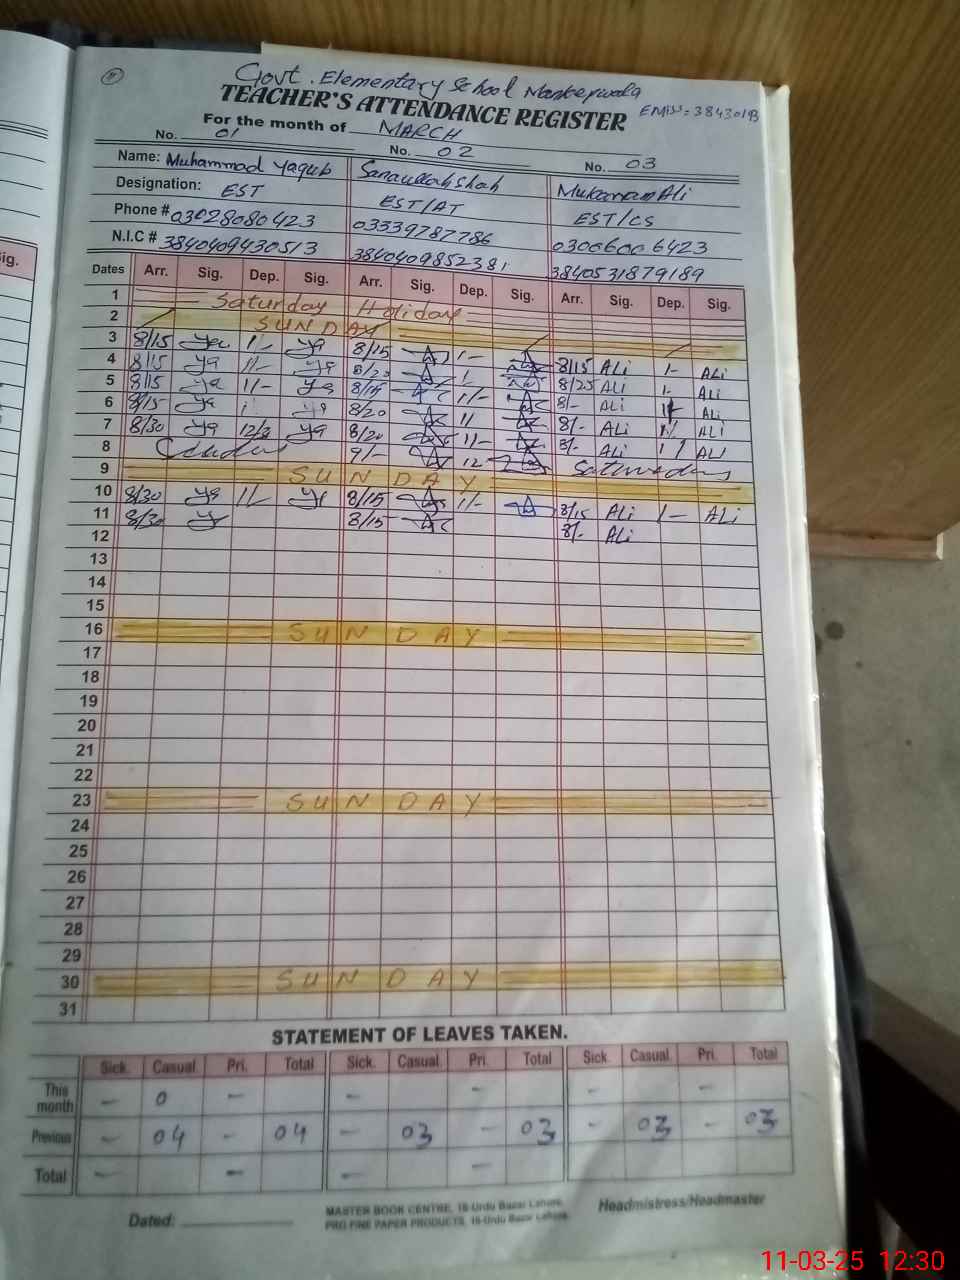 Govt. Elementary School Nankerwala
TEACHER'S ATTENDANCE REGISTER EMIS:=38430193
For the month of MARCH
No. 01 No. 02 No. 03
Name: Muhammad Yaqub Sanaullah Shah Mukarram Ali
Designation: EST EST/AT EST/CS
Phone # 03028080423 03339787786 03066006423
N.I.C # 3840409430513 3840409852381 3840531879189
ig.
Dates Arr. Sig. Dep. Sig. Arr. Sig. Dep. Sig. Arr. Sig. Dep. Sig.
1 Saturday Holiday
2 SUNDAY
3 8/15 Ya 1/- Ya 8/15 1/- 8/15 ALi 1- ALi
4 8/15 Ya 1/- Ya 8/20 1/ 8/25 ALi 1- ALi
5 8/15 Ya 1/- Ya 8/15 1/- 8/- ALi ALi
6 8/15 Ya Ya 8/20 1/ 8/- ALi 1/ ALi
7 8/30 Ya 12/30 Ya 8/20 1/- 8/- ALi 1/ ALi
8 9/- 12
9 SUNDAY
10 8/30 Ya 1/- Ya 8/15 1/- 8/15 ALi 1- ALi
11 8/30 Ya 8/15 8/- ALi
12
13
14
15
16 SUNDAY
17
18
19
20
21
22
23 SUNDAY
24
25
26
27
28
29
30 SUNDAY
31
STATEMENT OF LEAVES TAKEN.
Sick. Casual Pri. Total Sick. Casual Pri. Total Sick. Casual Pri. Total
This month - 0 - - - - -
Previous - 04 - 04 - 03 - 03 - 03 - 03
Total - - - -
Dated: MASTER BOOK CENTRE, 16-Urdu Bazar Lahore. Headmistress/Headmaster
PRO FINE PAPER PRODUCTS, 16-Urdu Bazar Lahore.
11-03-25 12:30